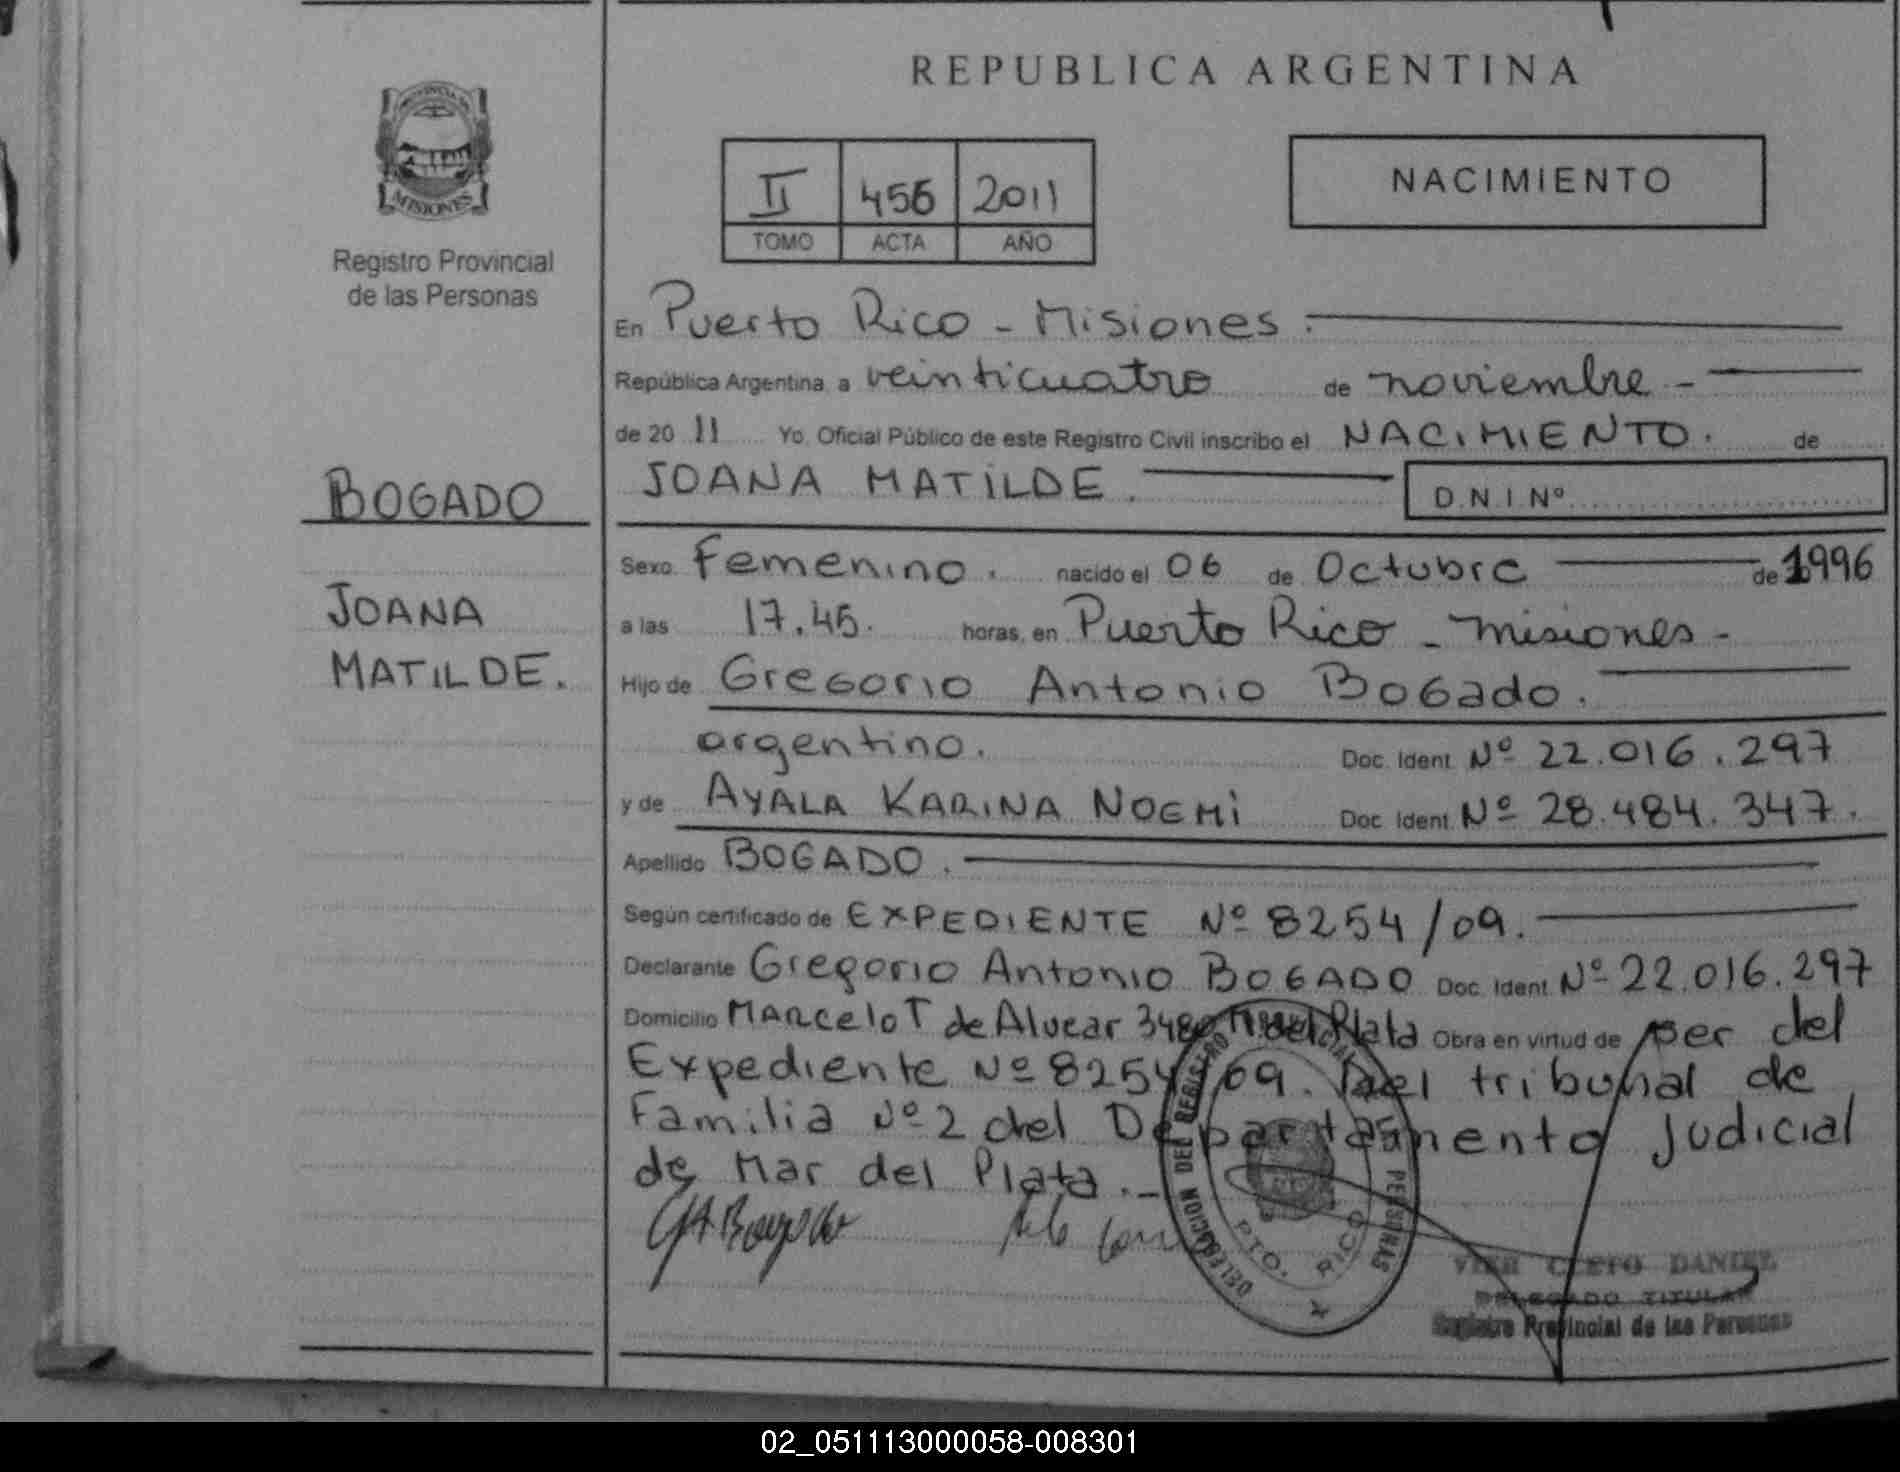 REPUBLICA ARGENTINA
PROVINCIA DE
MISIONES
Registro Provincial
de las Personas
II 456 2011
TOMO ACTA AÑO
NACIMIENTO
BOGADO
JOANA
MATILDE.
En Puerto Rico - Misiones.
República Argentina, a veinticuatro de noviembre -
de 20 11 Yo, Oficial Público de este Registro Civil inscribo el NACIMIENTO. de
JOANA MATILDE. D.N.I Nº
Sexo Femenino. nacido el 06 de Octubre de 1996
a las 17.45. horas, en Puerto Rico - Misiones -
Hijo de Gregorio Antonio Bogado.
argentino. Doc. Ident. Nº 22.016.297
y de AYALA KARINA NOEMI Doc. Ident. Nº 28.484.347.
Apellido BOGADO.
Según certificado de EXPEDIENTE Nº 8254/09.
Declarante Gregorio Antonio BOGADO Doc. Ident. Nº 22.016.297
Domicilio MARCelo T de Alvear 3480 M del Plata Obra en virtud de ser del
Expediente Nº 8254/09. Del tribunal de
Familia Nº 2 del Departamento Judicial
de Mar del Plata.-
GABogado
DELEGACION DEL REGISTRO PERSONAS
PTO. RICO
DANIEL
DELEGADO TITULAR
Registro Provincial de las Personas
02_051113000058-008301